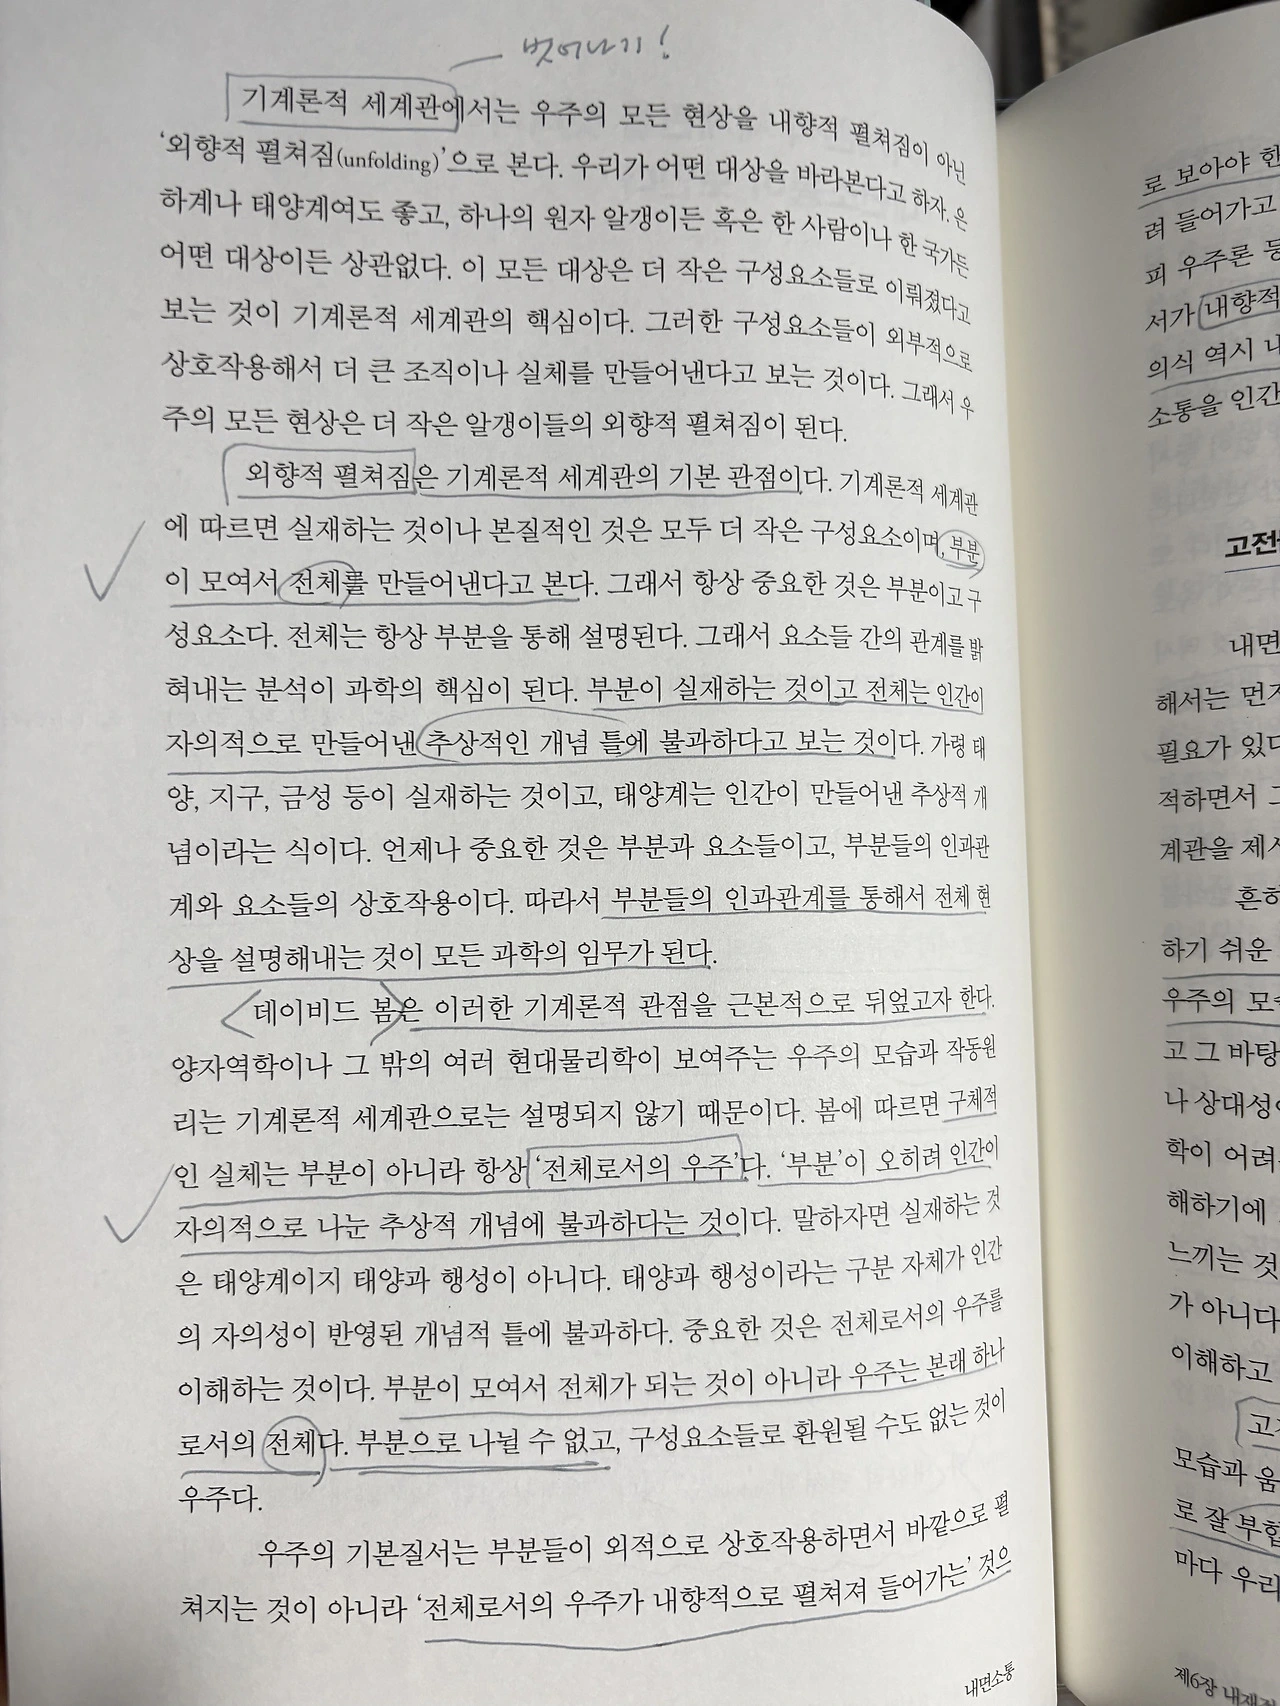 벗어나기!
기계론적 세계관에서는 우주의 모든 현상을 내향적 펼쳐짐이 아닌
‘외향적 펼쳐짐(unfolding)’으로 본다. 우리가 어떤 대상을 바라본다고 하자. 은
하계나 태양계여도 좋고, 하나의 원자 알갱이든 혹은 한 사람이나 한 국가든
어떤 대상이든 상관없다. 이 모든 대상은 더 작은 구성요소들로 이뤄졌다고
보는 것이 기계론적 세계관의 핵심이다. 그러한 구성요소들이 외부적으로
상호작용해서 더 큰 조직이나 실체를 만들어낸다고 보는 것이다. 그래서 우
주의 모든 현상은 더 작은 알갱이들의 외향적 펼쳐짐이 된다.
외향적 펼쳐짐은 기계론적 세계관의 기본 관점이다. 기계론적 세계관
에 따르면 실재하는 것이나 본질적인 것은 모두 더 작은 구성요소이며, 부분
이 모여서 전체를 만들어낸다고 본다. 그래서 항상 중요한 것은 부분이고 구
성요소다. 전체는 항상 부분을 통해 설명된다. 그래서 요소들 간의 관계를 밝
혀내는 분석이 과학의 핵심이 된다. 부분이 실재하는 것이고 전체는 인간이
자의적으로 만들어낸 추상적인 개념 틀에 불과하다고 보는 것이다. 가령 태
양, 지구, 금성 등이 실재하는 것이고, 태양계는 인간이 만들어낸 추상적 개
념이라는 식이다. 언제나 중요한 것은 부분과 요소들이고, 부분들의 인과관
계와 요소들의 상호작용이다. 따라서 부분들의 인과관계를 통해서 전체 현
상을 설명해내는 것이 모든 과학의 임무가 된다.
데이비드 봄은 이러한 기계론적 관점을 근본적으로 뒤엎고자 한다.
양자역학이나 그 밖의 여러 현대물리학이 보여주는 우주의 모습과 작동원
리는 기계론적 세계관으로는 설명되지 않기 때문이다. 봄에 따르면 구체적
인 실체는 부분이 아니라 항상 ‘전체로서의 우주’다. ‘부분’이 오히려 인간이
자의적으로 나눈 추상적 개념에 불과하다는 것이다. 말하자면 실재하는 것
은 태양계이지 태양과 행성이 아니다. 태양과 행성이라는 구분 자체가 인간
의 자의성이 반영된 개념적 틀에 불과하다. 중요한 것은 전체로서의 우주를
이해하는 것이다. 부분이 모여서 전체가 되는 것이 아니라 우주는 본래 하나
로서의 전체다. 부분으로 나뉠 수 없고, 구성요소들로 환원될 수도 없는 것이
우주다.
우주의 기본질서는 부분들이 외적으로 상호작용하면서 바깥으로 펼
쳐지는 것이 아니라 ‘전체로서의 우주가 내향적으로 펼쳐져 들어가는’ 것으
내면소통
로 보아야 한
려 들어가고
피 우주론 등
서가 내향적
의식 역시 내
소통을 인간
고전
내면
해서는 먼저
필요가 있다
적하면서 그
계관을 제시
흔히
하기 쉬운
우주의 모습
고 그 바탕
나 상대성
학이 어려
해하기에
느끼는 것
가 아니다
이해하고
고
모습과 움
로 잘 부합
마다 우리
제6장 내재